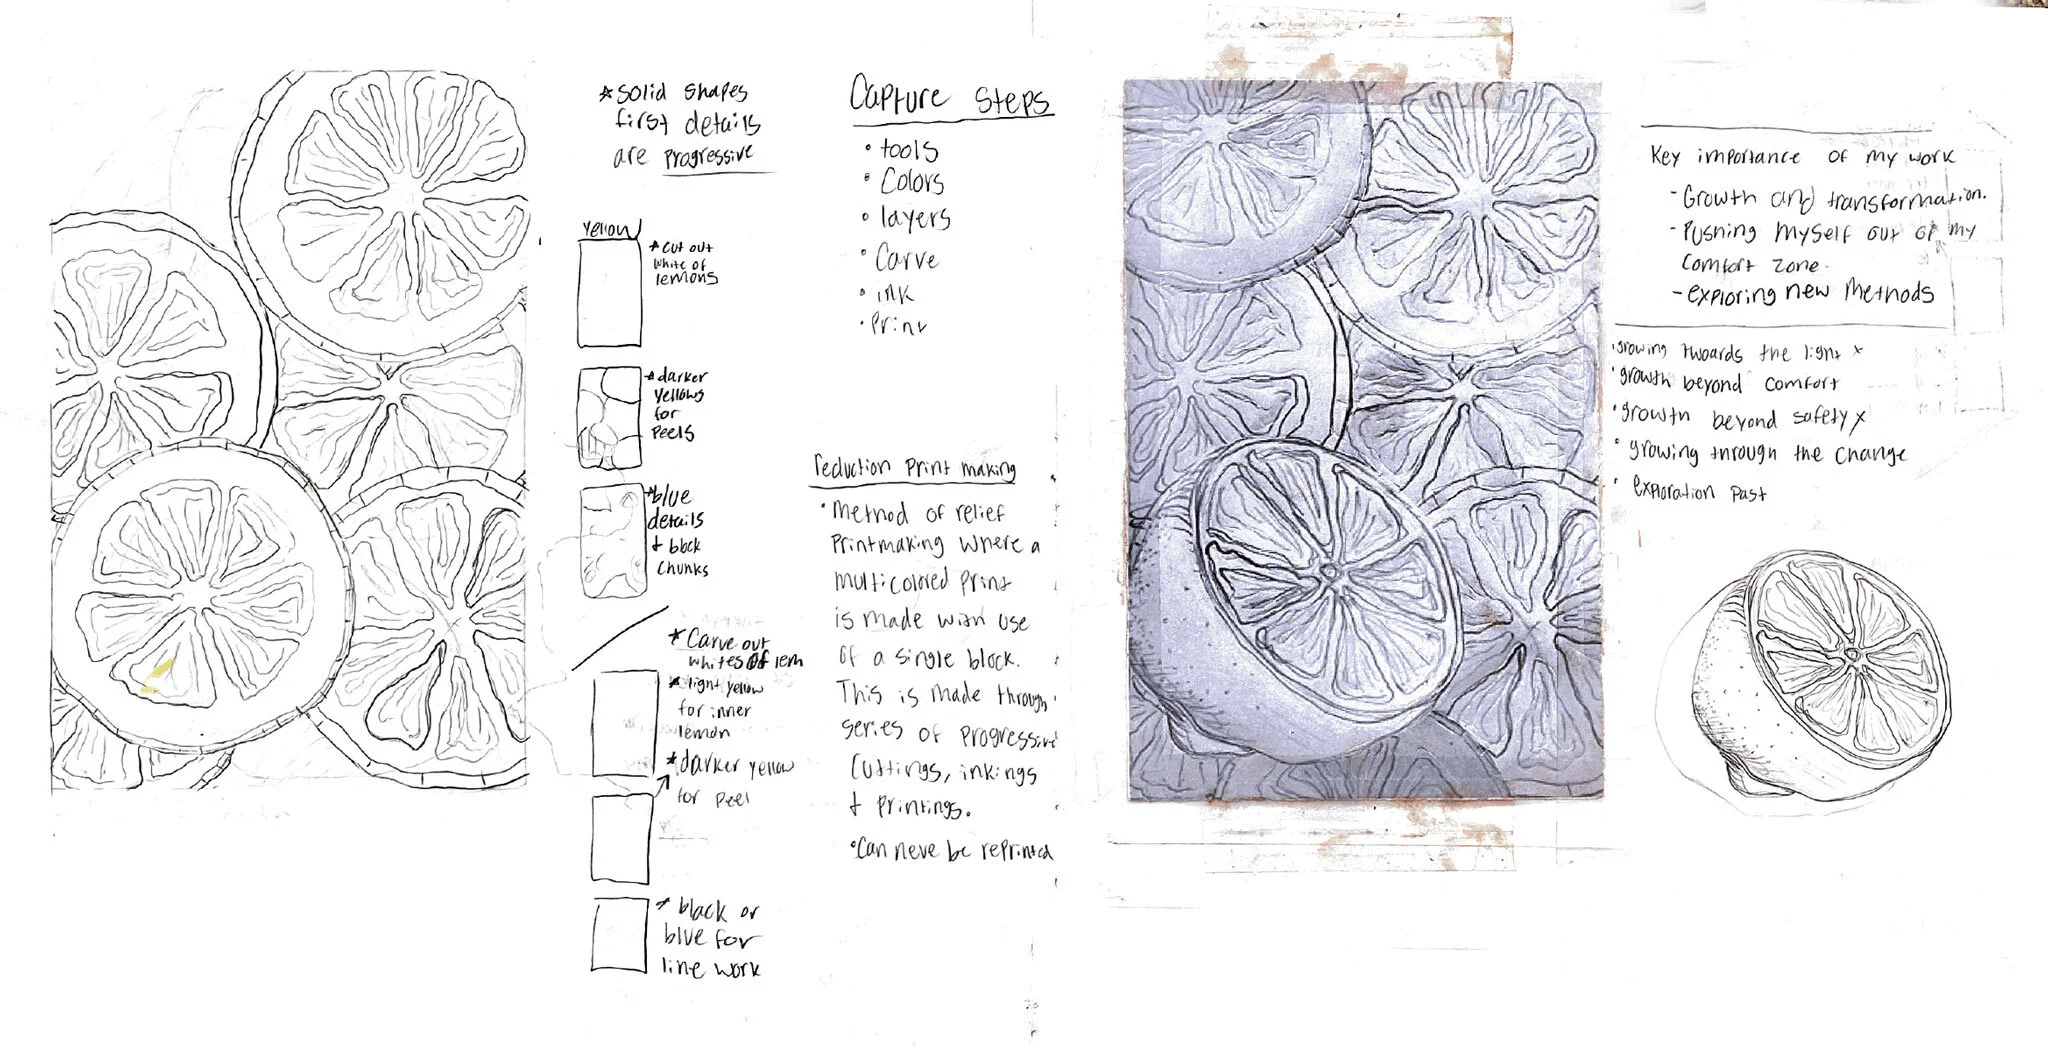 *solid shapes
first details
are progressive
yellow
*cut out
white of
lemons
*darker
yellows
for
peels
*blue
details
+ black
chunks
*Carve out
whites of lem
*light yellow
for inner
lemon
*darker yellow
for peel
*black or
blue for
line work
Capture Steps
• tools
• Colors
• layers
• Carve
• ink
• Print
reduction print making
• Method of relief
Printmaking where a
multicolored print
is made with use
of a single block.
This is made through
series of progressive
cuttings, inkings
+ printings.
• Can neve be reprinted
Key importance of my work
- Growth and transformation.
- Pushing myself out of my
comfort zone.
- exploring new methods
• growing twoards the light x
• growth beyond comfort
• growth beyond safety x
• growing through the change
• exploration past